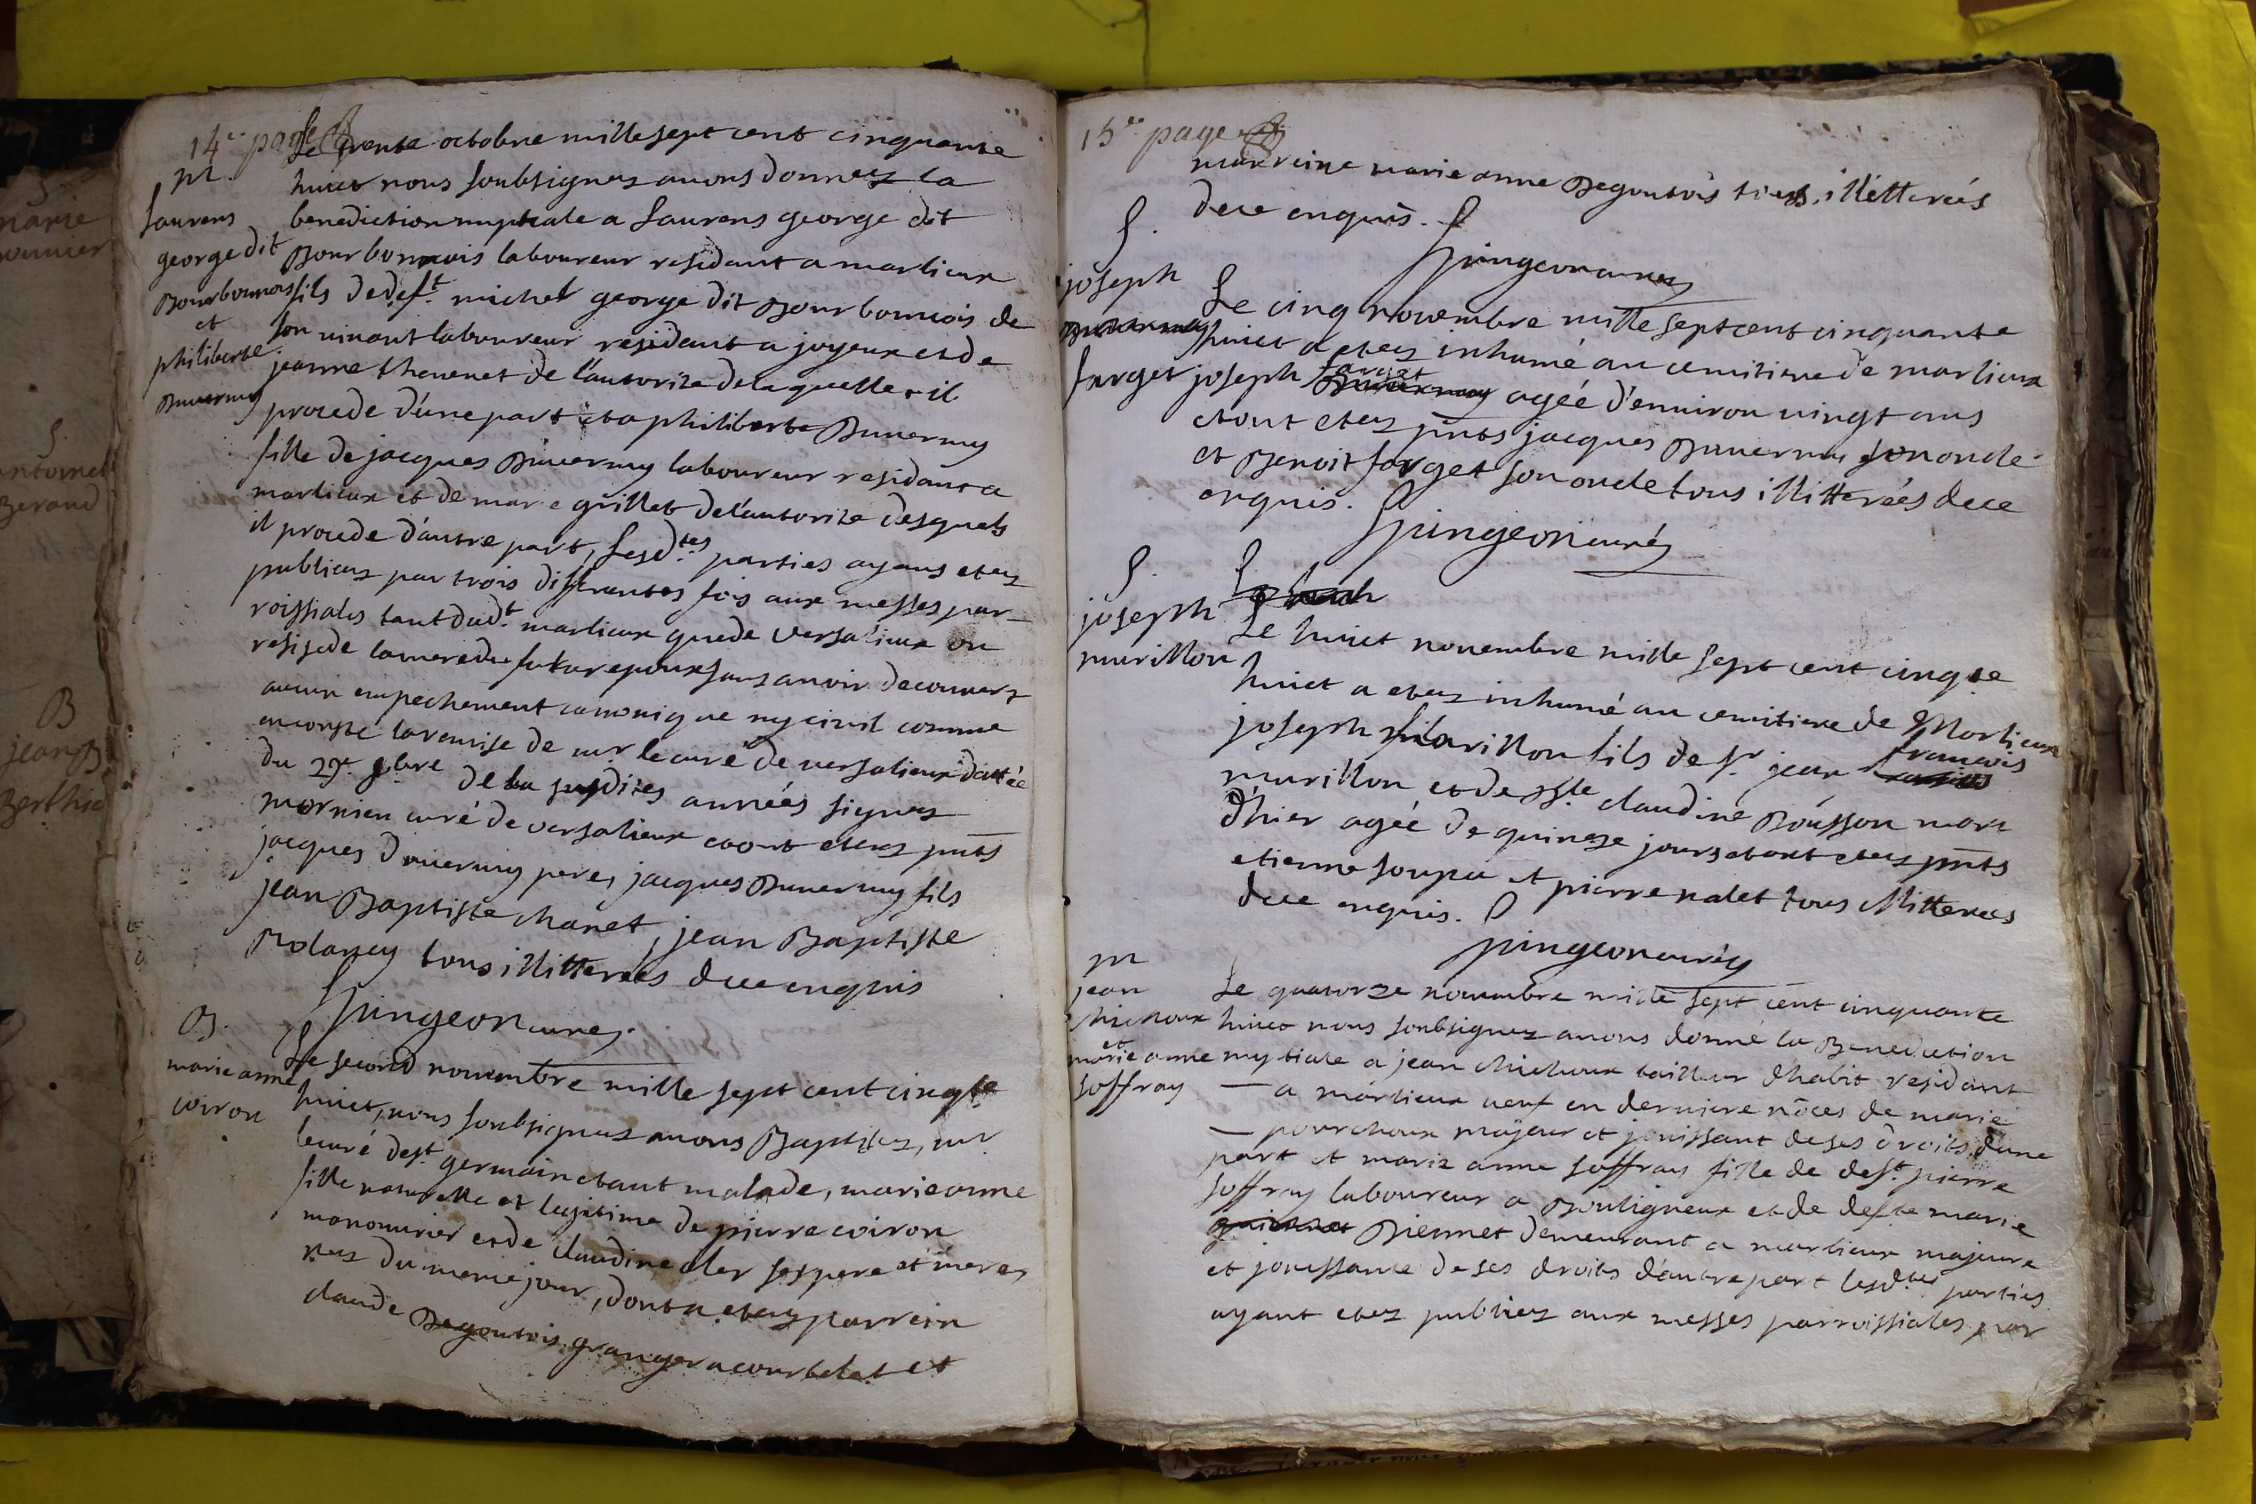 14e page
M.
Laurens
george dit
Bourbonnois
et
philiberte
Duvernay
Le trente octobre mille sept cent cinquante
huict nous soubsignez avons donnez la
benediction nuptiale a Laurens george dit
Bourbonnois laboureur residant a marlieux
fils de deft. michel george dit Bourbonnois de
son vivant laboureur residant a joyeux et de
jeanne thevenet de l'autorite de laquelle il
procede d'une part et a philiberte Duvernay
fille de jacques Duvernay laboureur residant a
marlieux et de marie grillet de l'autorite desquels
il procede d'autre part, Lesdtes parties ayans etez
publiez par trois differantes fois aux messes par-
roissiales tant dudt. marlieux que de versalieux ou
reside la mere du futur epoux sans avoir decouvert
aucun empechement canonique ny civil comme
en conste la remise de mr le curé de versalieux dattée
du 29e 8bre de la susdites années signez
mornieu curé de versalieux et ont etez pnts
jacques Duvernay pere, jacques Duvernay fils
jean Baptiste chanet, jean Baptiste
Rolancy tous illitterées de ce enquis
Pingeon curé
B.
marie anne
coiron
Le second novembre mille sept cent cinqte
huict, nous soubsignez avons Baptisez, mr
le curé de st germain etant malade, marie anne
fille naturelle et legitime de pierre coiron
manouvrier et de claudine cler ses pere et mere,
nez du meme jour, dont a etez parrein
claude Degoutois granger a courbelet et
15e page
marreine marie anne Degoutois tiess, illitterées
de ce enquis.
Pingeon curez
S.
joseph
Duvernay
farget
Le cinq novembre mille sept cent cinquante
huict a etez inhumé au cemitiere de marlieux
farget
joseph Duvernay agéé d'environ vingt ans
et ont etez pnts jacques Duvernay son oncle
et Benoit farget son oncle tous illitterées de ce
enquis.
Pingeon curé
S.
joseph
murillon
Le huict
Le huict novembre mille sept cent cinqte
huict a etez inhumé au cemitiere de Marlieux
françois
joseph murillon fils de sr jean
murillon et de dlle claudine Bousson mort
d'hier agéé de quinze jours et ont etez pnts
etienne soupa et pierre nalet tous illitterées
de ce enquis.
Pingeon curéz
M
jean
chichoux
et
marie anne
soffray
Le quatorze novembre mille sept cent cinquante
huict nous soubsignez avons donné la Benediction
nuptiale a jean chichoux tailleur d'habit residant
— a marlieux veuf en derniere nôces de marie
— pourchoux majeur et jouissant de ses droits d'une
part et marie anne soffray fille de deft. pierre
soffray laboureur a Bouligneux et de defte marie
Biennet demeurant a marlieux majeure
et jouissante de ses droits d'autre part lesdtes parties
ayant etez publiez aux messes parroissiales par
S.
marie
S.
antoinet
Beraud
B
jean B
Berthie